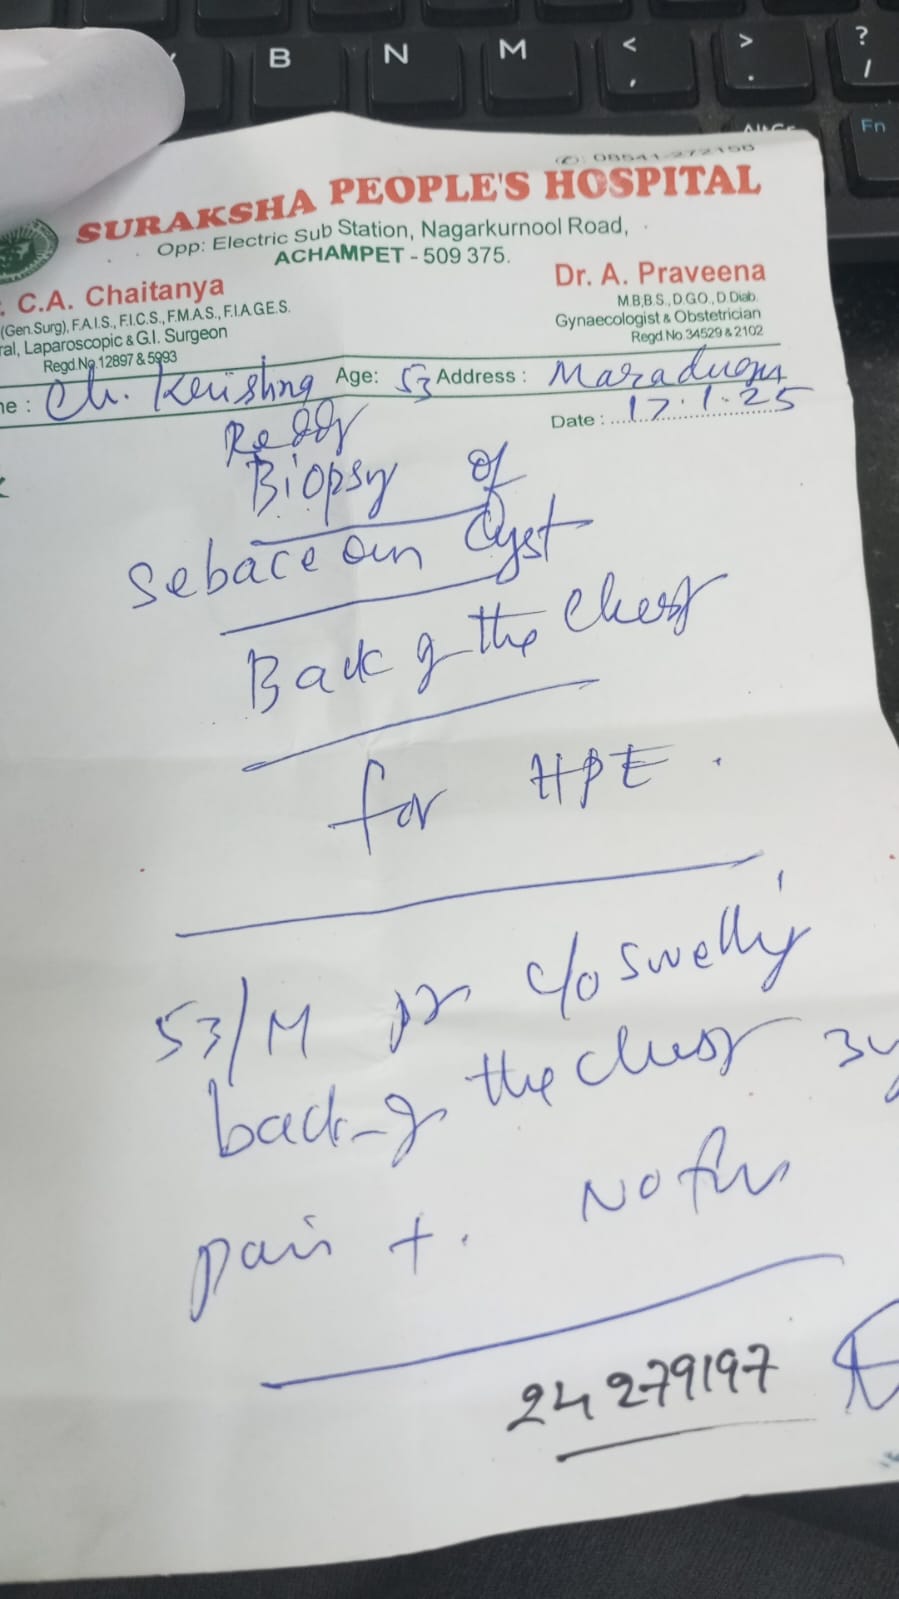 B N M < , > . ? /
Fn
✆: 08541-272150
SURAKSHA PEOPLE'S HOSPITAL
Opp: Electric Sub Station, Nagarkurnool Road,
ACHAMPET - 509 375.
C.A. Chaitanya
(Gen.Surg), F.A.I.S., F.I.C.S., F.M.A.S., F.I.A.G.E.S.
ral, Laparoscopic & G.I. Surgeon
Regd.No.12897 & 5993
Dr. A. Praveena
M.B,B.S., D.G.O., D.Diab.
Gynaecologist & Obstetrician
Regd.No.34529 & 2102
me : Ch. Krishna Age: 53 Address :
Reddy
Date : 17.1.25
Biopsy of
Sebaceous Cyst
Back of the Chest
for HPE.
53/M c/o swelling
back of the chest
pain +. No
24279197